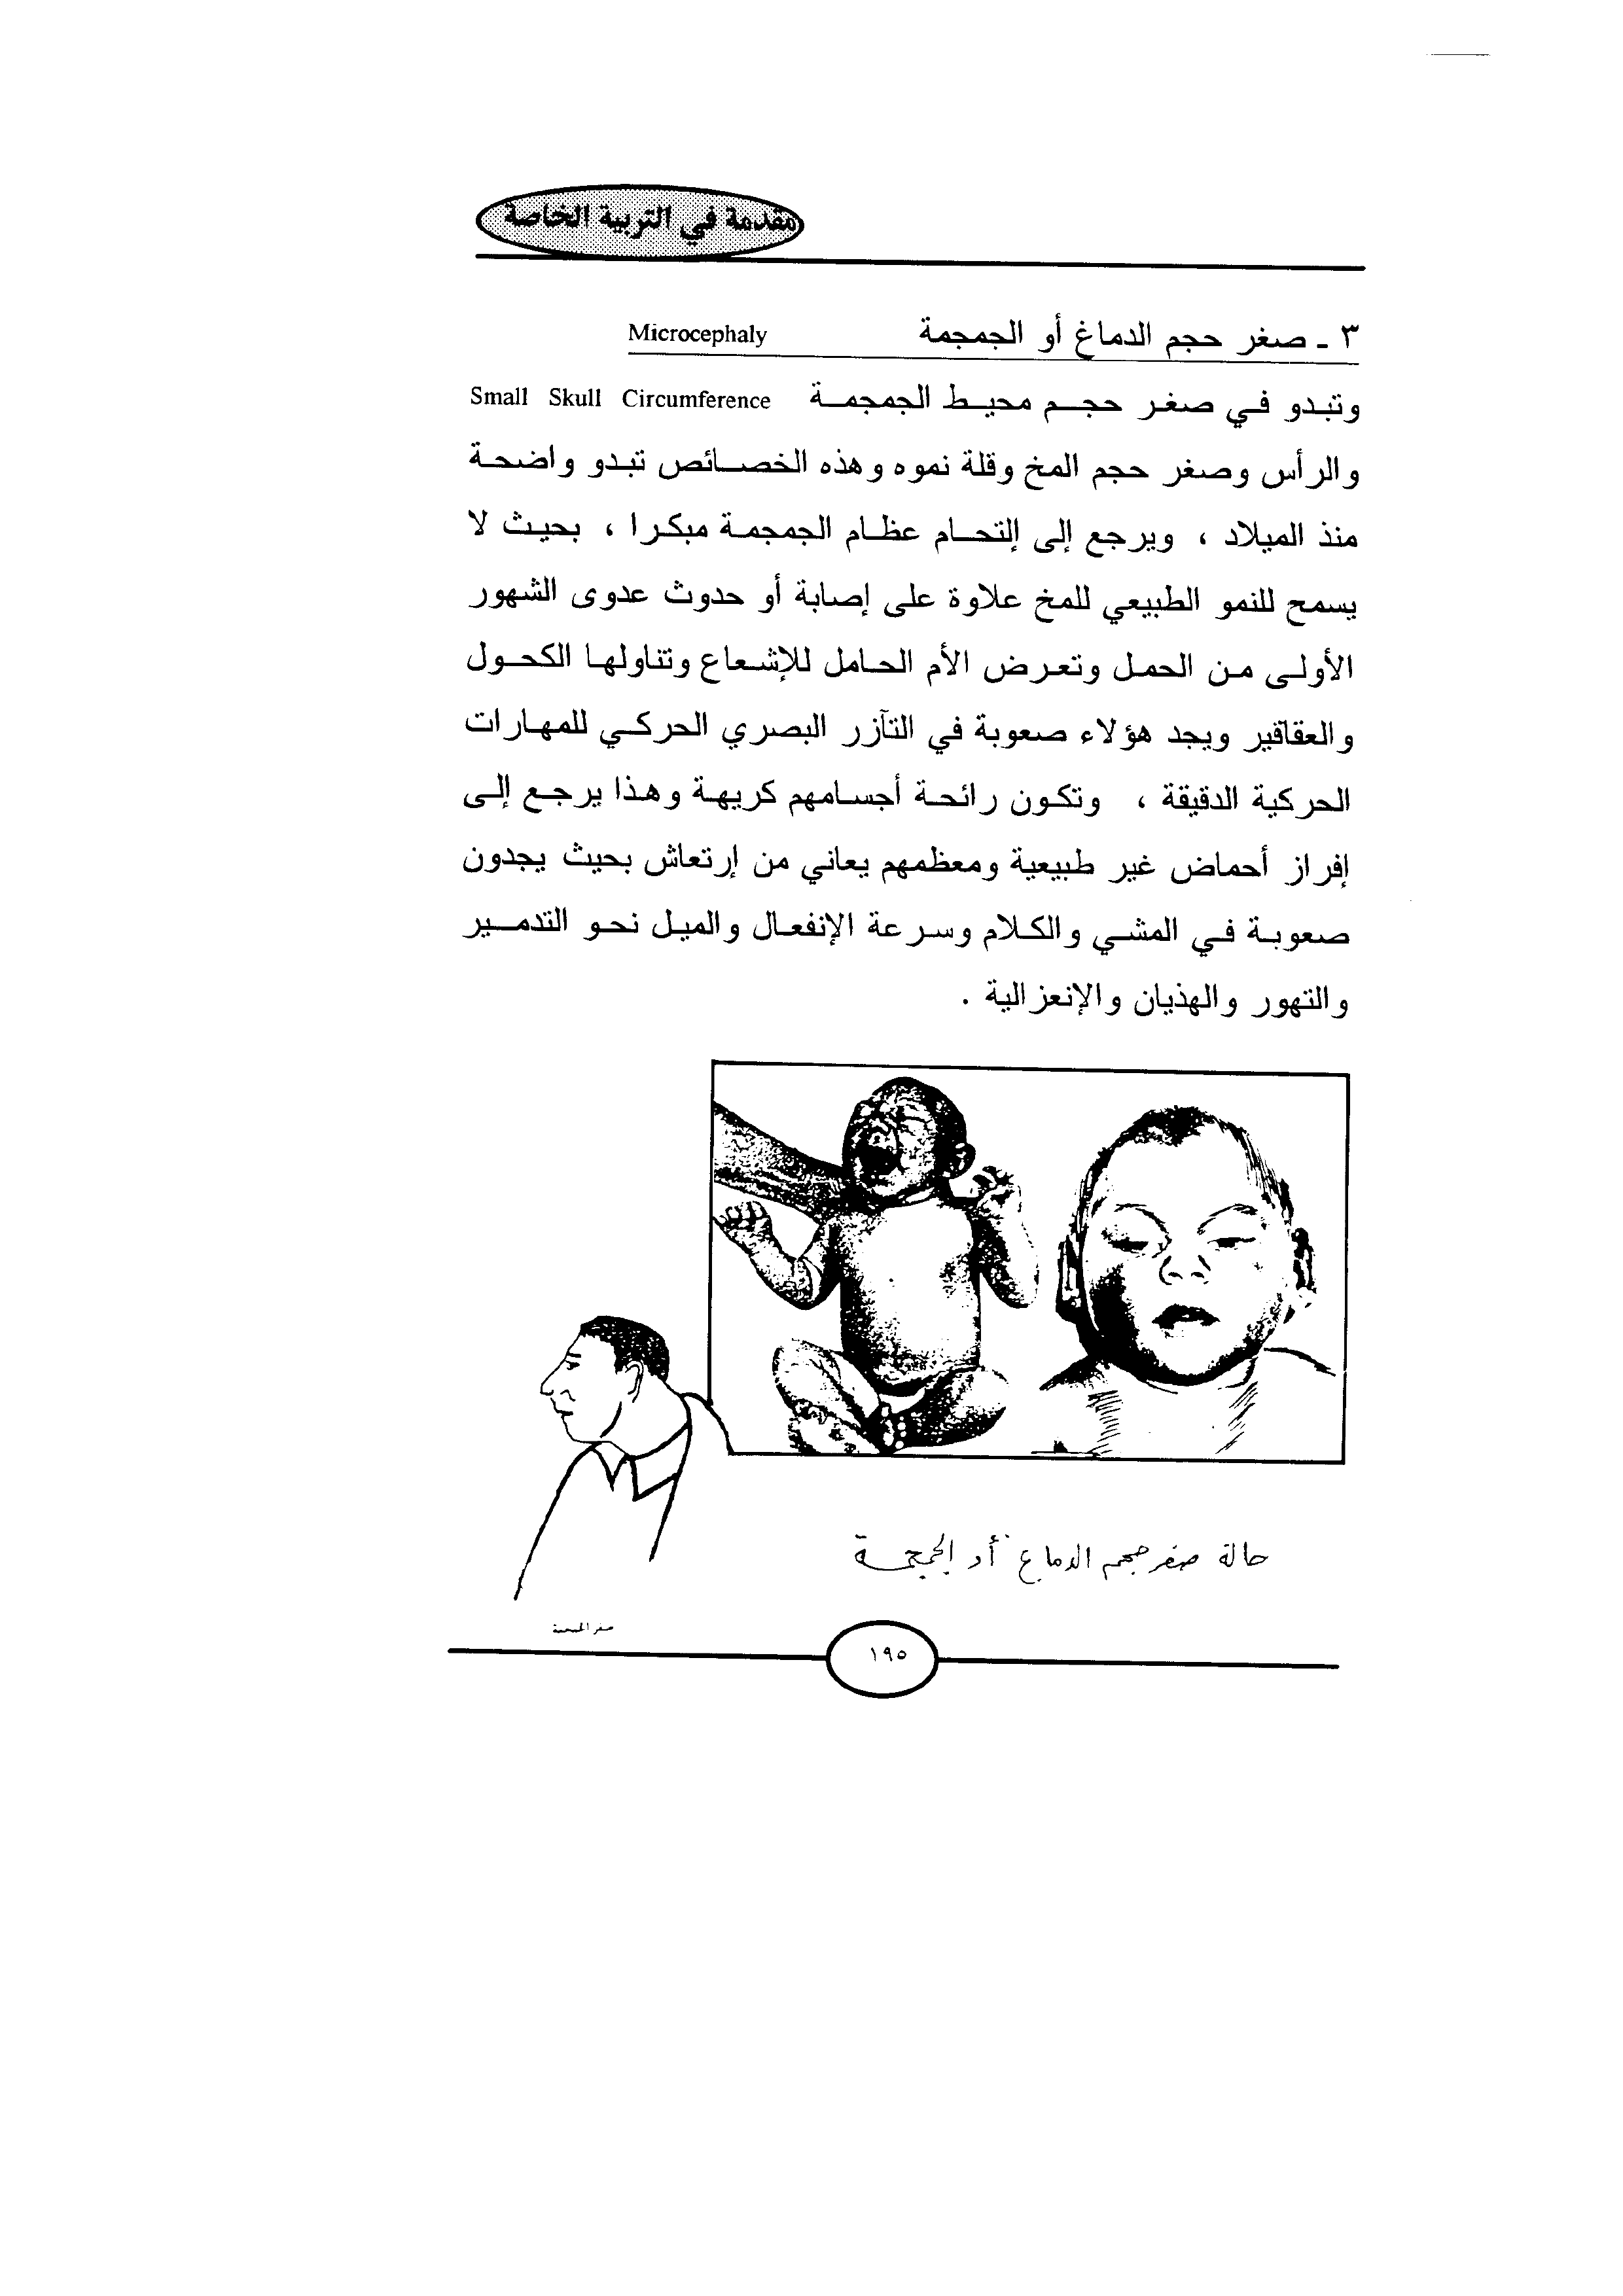 مقدمة في التربية الخاصة
٣ ـ صغر حجم الدماغ أو الجمجمة Microcephaly
وتبدو في صغر حجم محيط الجمجمة Small Skull Circumference
والرأس وصغر حجم المخ وقلة نموه وهذه الخصائص تبدو واضحة
منذ الميلاد ، ويرجع إلى إلتحام عظام الجمجمة مبكرا ، بحيث لا
يسمح للنمو الطبيعي للمخ علاوة على إصابة أو حدوث عدوى الشهور
الأولى من الحمل وتعرض الأم الحامل للإشعاع وتناولها الكحول
والعقاقير ويجد هؤلاء صعوبة في التآزر البصري الحركي للمهارات
الحركية الدقيقة ، وتكون رائحة أجسامهم كريهة وهذا يرجع إلى
إفراز أحماض غير طبيعية ومعظمهم يعاني من إرتعاش بحيث يجدون
صعوبة في المشي والكلام وسرعة الإنفعال والميل نحو التدمير
والتهور والهذيان والإنعزالية .
حالة صغر حجم الدماغ أو الجمجمة
صغر الجمجمة
١٩٥